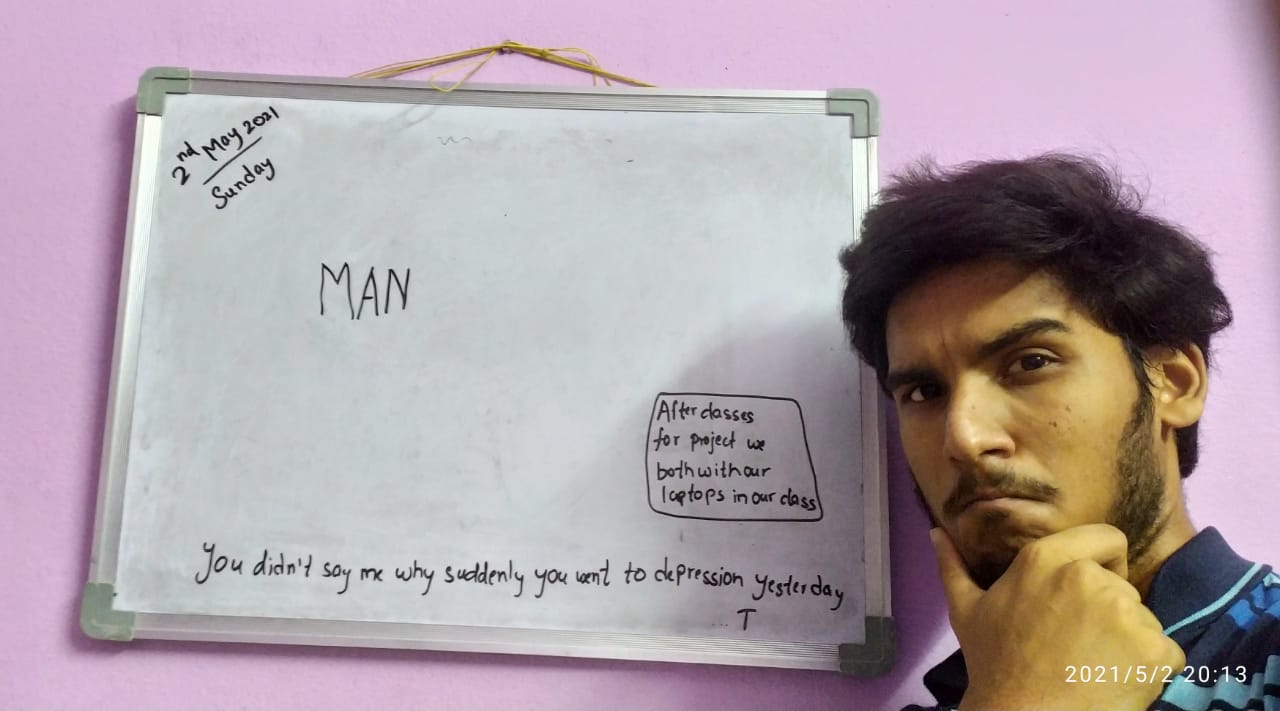 2nd May 2021
Sunday
MAN
After classes
for project we
both with our
laptops in our class
You didn't say me why suddenly you went to depression yesterday
.. T
2021/5/2 20:13